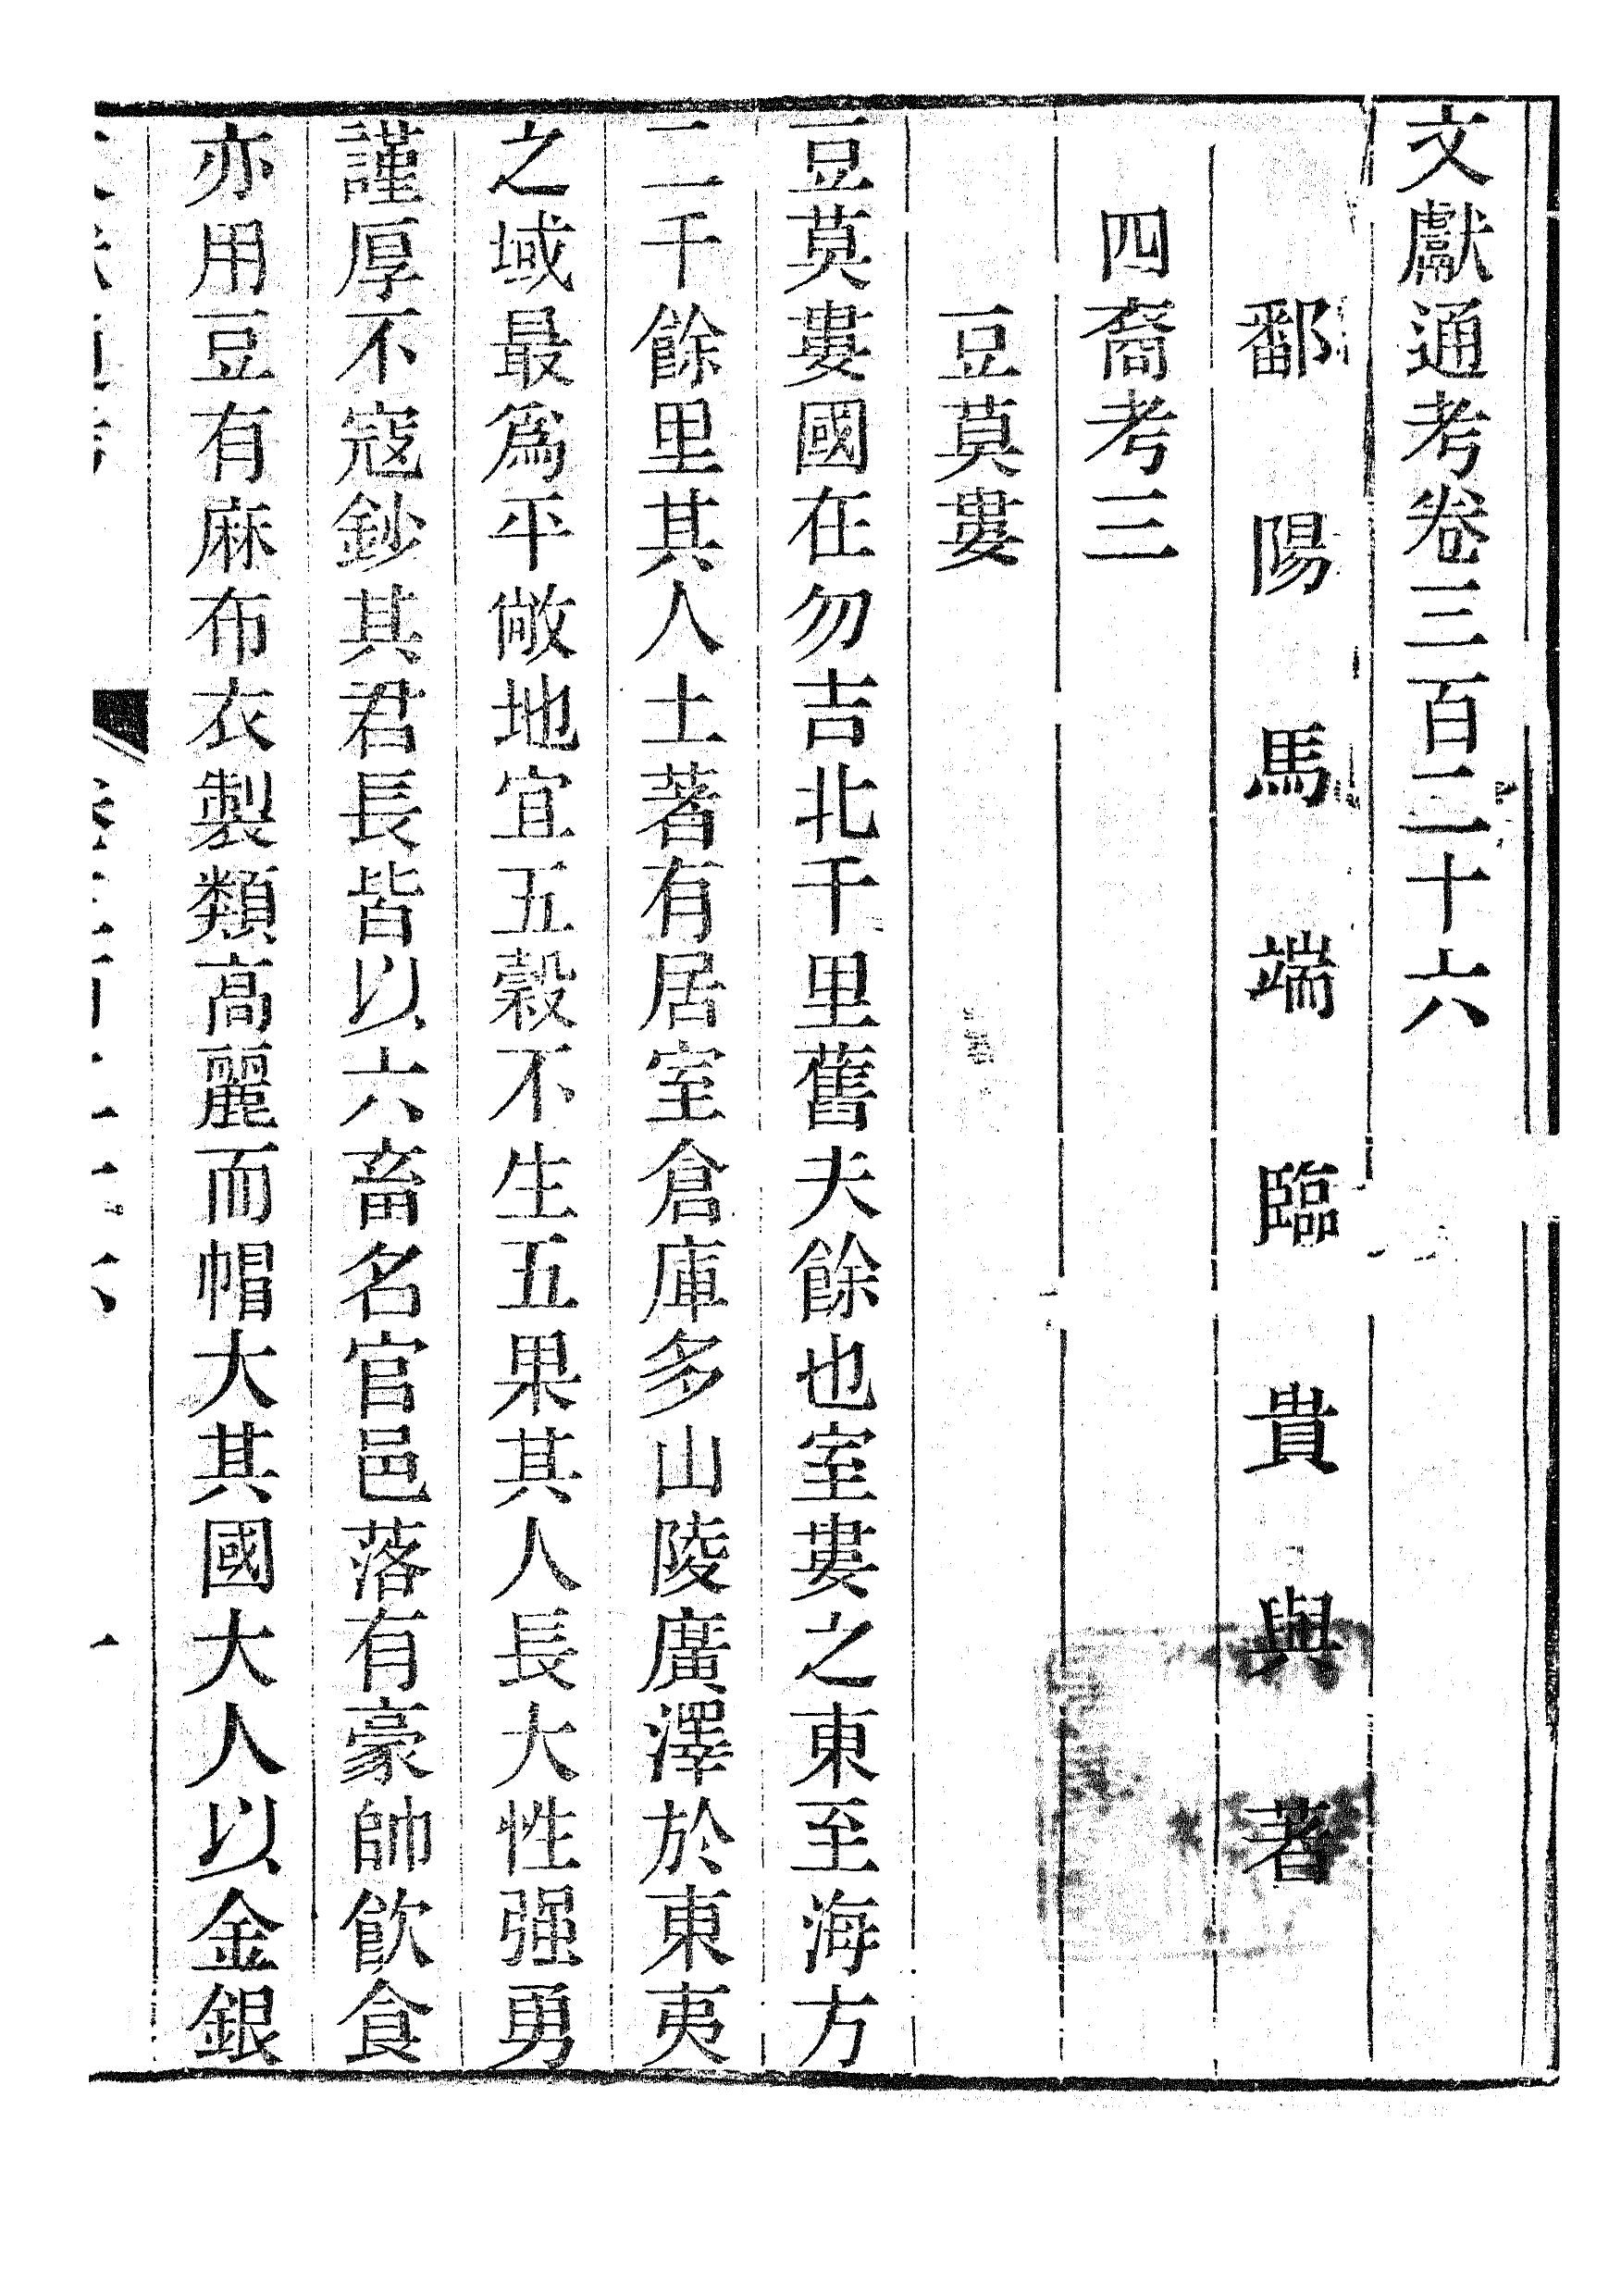 文獻通考卷三百二十六
鄱陽馬端臨貴與著
四裔考三
豆莫婁
豆莫婁國在勿吉北千里舊夫餘也室婁之東至海方
二千餘里其人土著有居室倉庫多山陵廣澤於東夷
之域最爲平敞地宜五穀不生五果其人長大性强勇
謹厚不寇鈔其君長皆以六畜名官邑落有豪帥飮食
亦用豆有麻布衣製類高麗而帽大其國大人以金銀